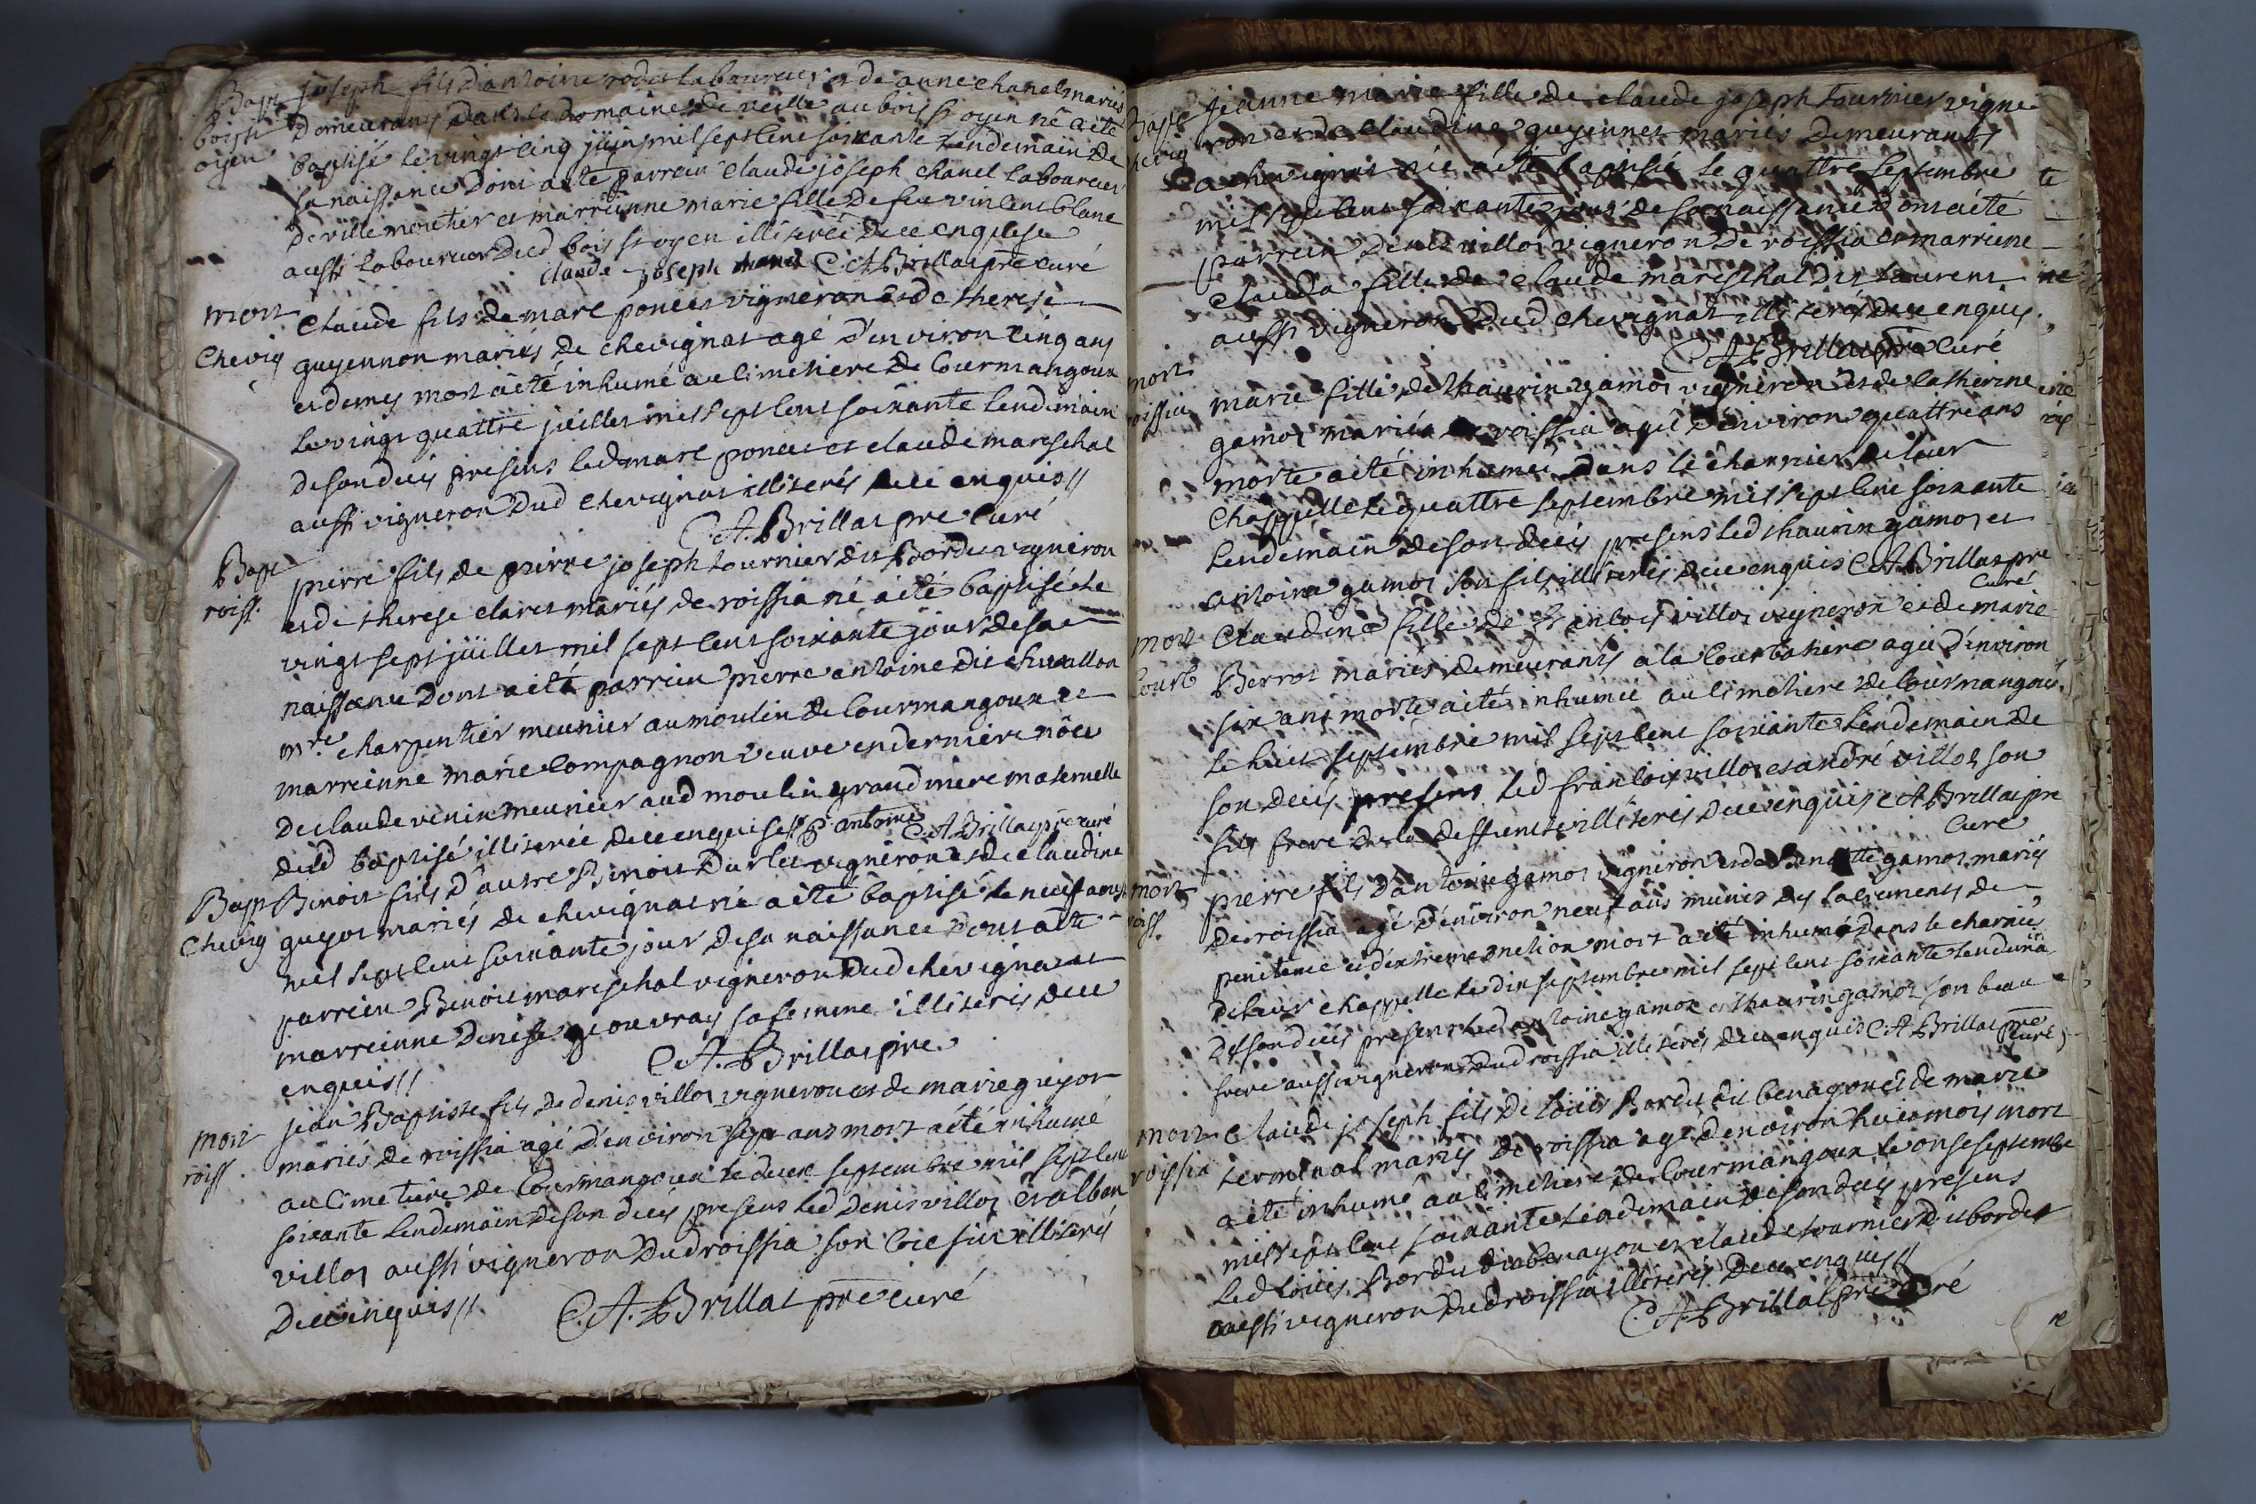 Bapt joseph fils d'antoine rodet laboureur et de anne chanel mariés
boissi demeurans dans le domaine de veille au bois st oyen né a été
oyen baptisé le vingt cinq juin mil sept cent soixante lendemain de
sa naissance dont a été parrein claude joseph chanel laboureur
de villemoutier et marreinne marie fille de feu vincent blanc
aussi laboureur dud bois st oyen illiterée de ce enquise
claude joseph chanel C A Brillat pre curé
mort claude fils de marc poncet vigneron et de therese
chevig guyennon mariés de chevignat agé d'environ cinq ans
et demy mort a été inhumé au cimetiere de Courmangoux
le vingt quattre juillet mil sept cent soixante lendemain
de son decés presens led marc poncet et claude mareschal
aussi vigneron dud chevignat illiterés de ce enquis //
C. A. Brillat pre curé
Bapt pierre fils de pierre joseph tournier dit Bordet vigneron
roiss. et de therese claret mariés de roissia né a été baptisé le
vingt sept juillet mil sept cent soixante jour de sa
naissance dont a été parrein pierre antoine dit chevallon
mtre charpentier meunier au moulin de Courmangoux et
marreinne marie Compagnon veuve en derniere nôce
de claude venin meunier aud moulin grand mere maternelle
dud baptisé illiterée de ce enquise // P antoine C A Brillat pre curé
Bapt Benoit fils d'autre Benoit Darlet vigneron et de claudine
chevig guyot mariés de chevignat né a été baptisé le neuf aoust
mil sept cent soixante jour de sa naissance dont a été
parrein Benoit mareschal vigneron dud chevignat et
marreinne denise jouvray sa femme illiteris de ce
enquis // C. A. Brillat pre
jean Baptiste fils de denis villot vigneron et de marie guyot
mort mariés de roissia agé d'environ sept ans mort a été inhumé
roiss au cimetiere de Courmangoux le deux septembre mil sept cent
soixante lendemain de son decés presens led denis villot et alban
villot aussi vigneron dud roissia son illiterés
de ce enquis // C. A. Brillat pre curé
Bapt jeanne marie fille de claude joseph tournier vigne
chevig ron et de claudine guyennet mariés demeurants
a chevignat née a été baptisée le quattre septembre
mil sept cent soixante jour de sa naissance dont a été
parrein denis villot vigneron de roissia et marreine
claudа fille de claude mareschal dit laurent
aussi vigneron dud chevignat illiterés de ce enquis.
C A Brillat pre curé
mort marie fille de thaurin gamot vigneron et de catherine
roissia gamot mariés de roissia agée d'environ quattre ans
morte a été inhumée dans le charnier de leur
chappelle le quattre septembre mil sept cent soixante
lendemain de son decés presens led thaurin gamot et
antoine gamot son fils illiterés de ce enquis C A Brillat pre
curé
mort claudine fille de françois villot vigneron et de marie
courb Berrot mariés demeurants a la Courbatiere agée d'environ
six ans morte a été inhumée au cimetiere de Courmangoux
le huit septembre mil sept cent soixante lendemain de
son decés presens led françois villot et andré villot son
fils frere de la deffuncte illiterés de ce enquis C A Brillat pre
curé
mort pierre fils d'antoine gamot vigneron et de Benoitte gamot mariés
roiss. de roissia agé d'environ neuf ans munis des sacrements de
penitence et d'extreme onction mort a été inhumé dans le charnier
de leur chappelle le dix septembre mil sept cent soixante lendemain
de son decés presens led antoine gamot et thaurin gamot son beau
frere aussi vigneron dud roissia illiterés de ce enquis C A Brillat pre
curé
mort claude joseph fils de loüis Bordet dit benayon et de marie
roissia terminal mariés de roissia agé d'environ huit mois mort
a été inhumé au cimetiere de Courmangoux le onse septembre
mil sept cent soixante lendemain de son decés presens
led loüis Bordet dit benayon et claude tournier dit bordet
aussi vigneron dud roissia illiterés de ce enquis //
C. A. Brillat pre curé